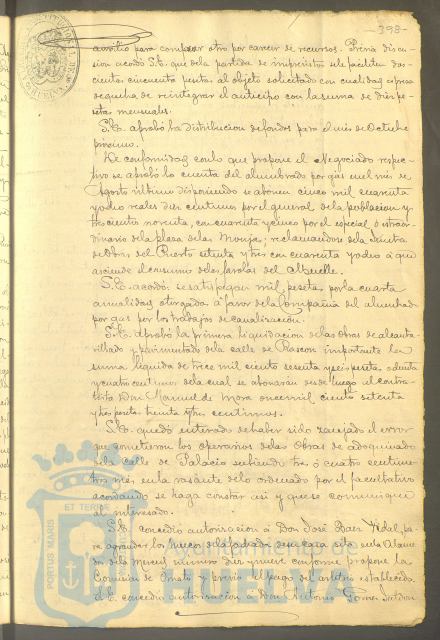 -398-
auxilio para comprar otro por carecer de recursos. Previa discu-
sion acordó S.E. que de la partida de imprevistos se le faciliten dos-
cientas cincuenta pesetas al objeto solicitado con cualidad espresa
de que ha de reintegrar el anticipo con la suma de diez pe-
setas mensuales.
S.E. aprobó la distribucion de fondos para el mes de Octubre
proximo.
De conformidad con lo que propone el Negociado respec-
tivo se aprobó la cuenta del alumbrado por gas en el mes de
Agosto último disponiendo se abonen cinco mil cuarenta
y ocho reales diez centimos por el general de la poblacion y
trescientos noventa, con cuarenta y cinco por el especial ó estraor-
dinario de la plaza de las Monjas, reclamandose de la Junta
de Obras del Puerto setenta y tres con cuarenta y ocho á que
asciende el consumo de las farolas del Muelle.
S.E. acordó se satisfagan mil pesetas por la cuarta
anualidad otorgada á favor de la Compañia del alumbrado
por gas por los trabajos de canalizacion.
S.E. aprobó la primera liquidacion de las obras de alcanta-
rillado y pavimentado de la calle de Rascon importante la
suma liquida de trece mil ciento sesenta y seis pesetas, ochenta
y cuatro centimos de la cual se abonarán desde luego al contra-
tista Don Manuel de Mora once mil ciento setenta
y tres pesetas treinta y tres centimos.
S.E. quedó enterado de haber sido zanjado el error
que cometieron los operarios de las Obras de adoquinado
de la calle de Palacio subiendo tres ó cuatro centime-
tros más en la rasante de lo ordenado por el facultativo
acordando se haga constar asi y que se comunique
al interesado.
S.E. concedió autorizacion á Don José Baez Vidal, pa-
ra agrandar los huecos de la fachada de su casa sita en la Alame-
da de la Merced número diez y nueve conforme propone la
Comision de Ornato y previo el pago del arbitrio establecido.
S.E. concedió autorizacion á Don Antonio Gomez
Ayuntamiento de
HUELVA
PORTUS MARIS
ET TERRAE